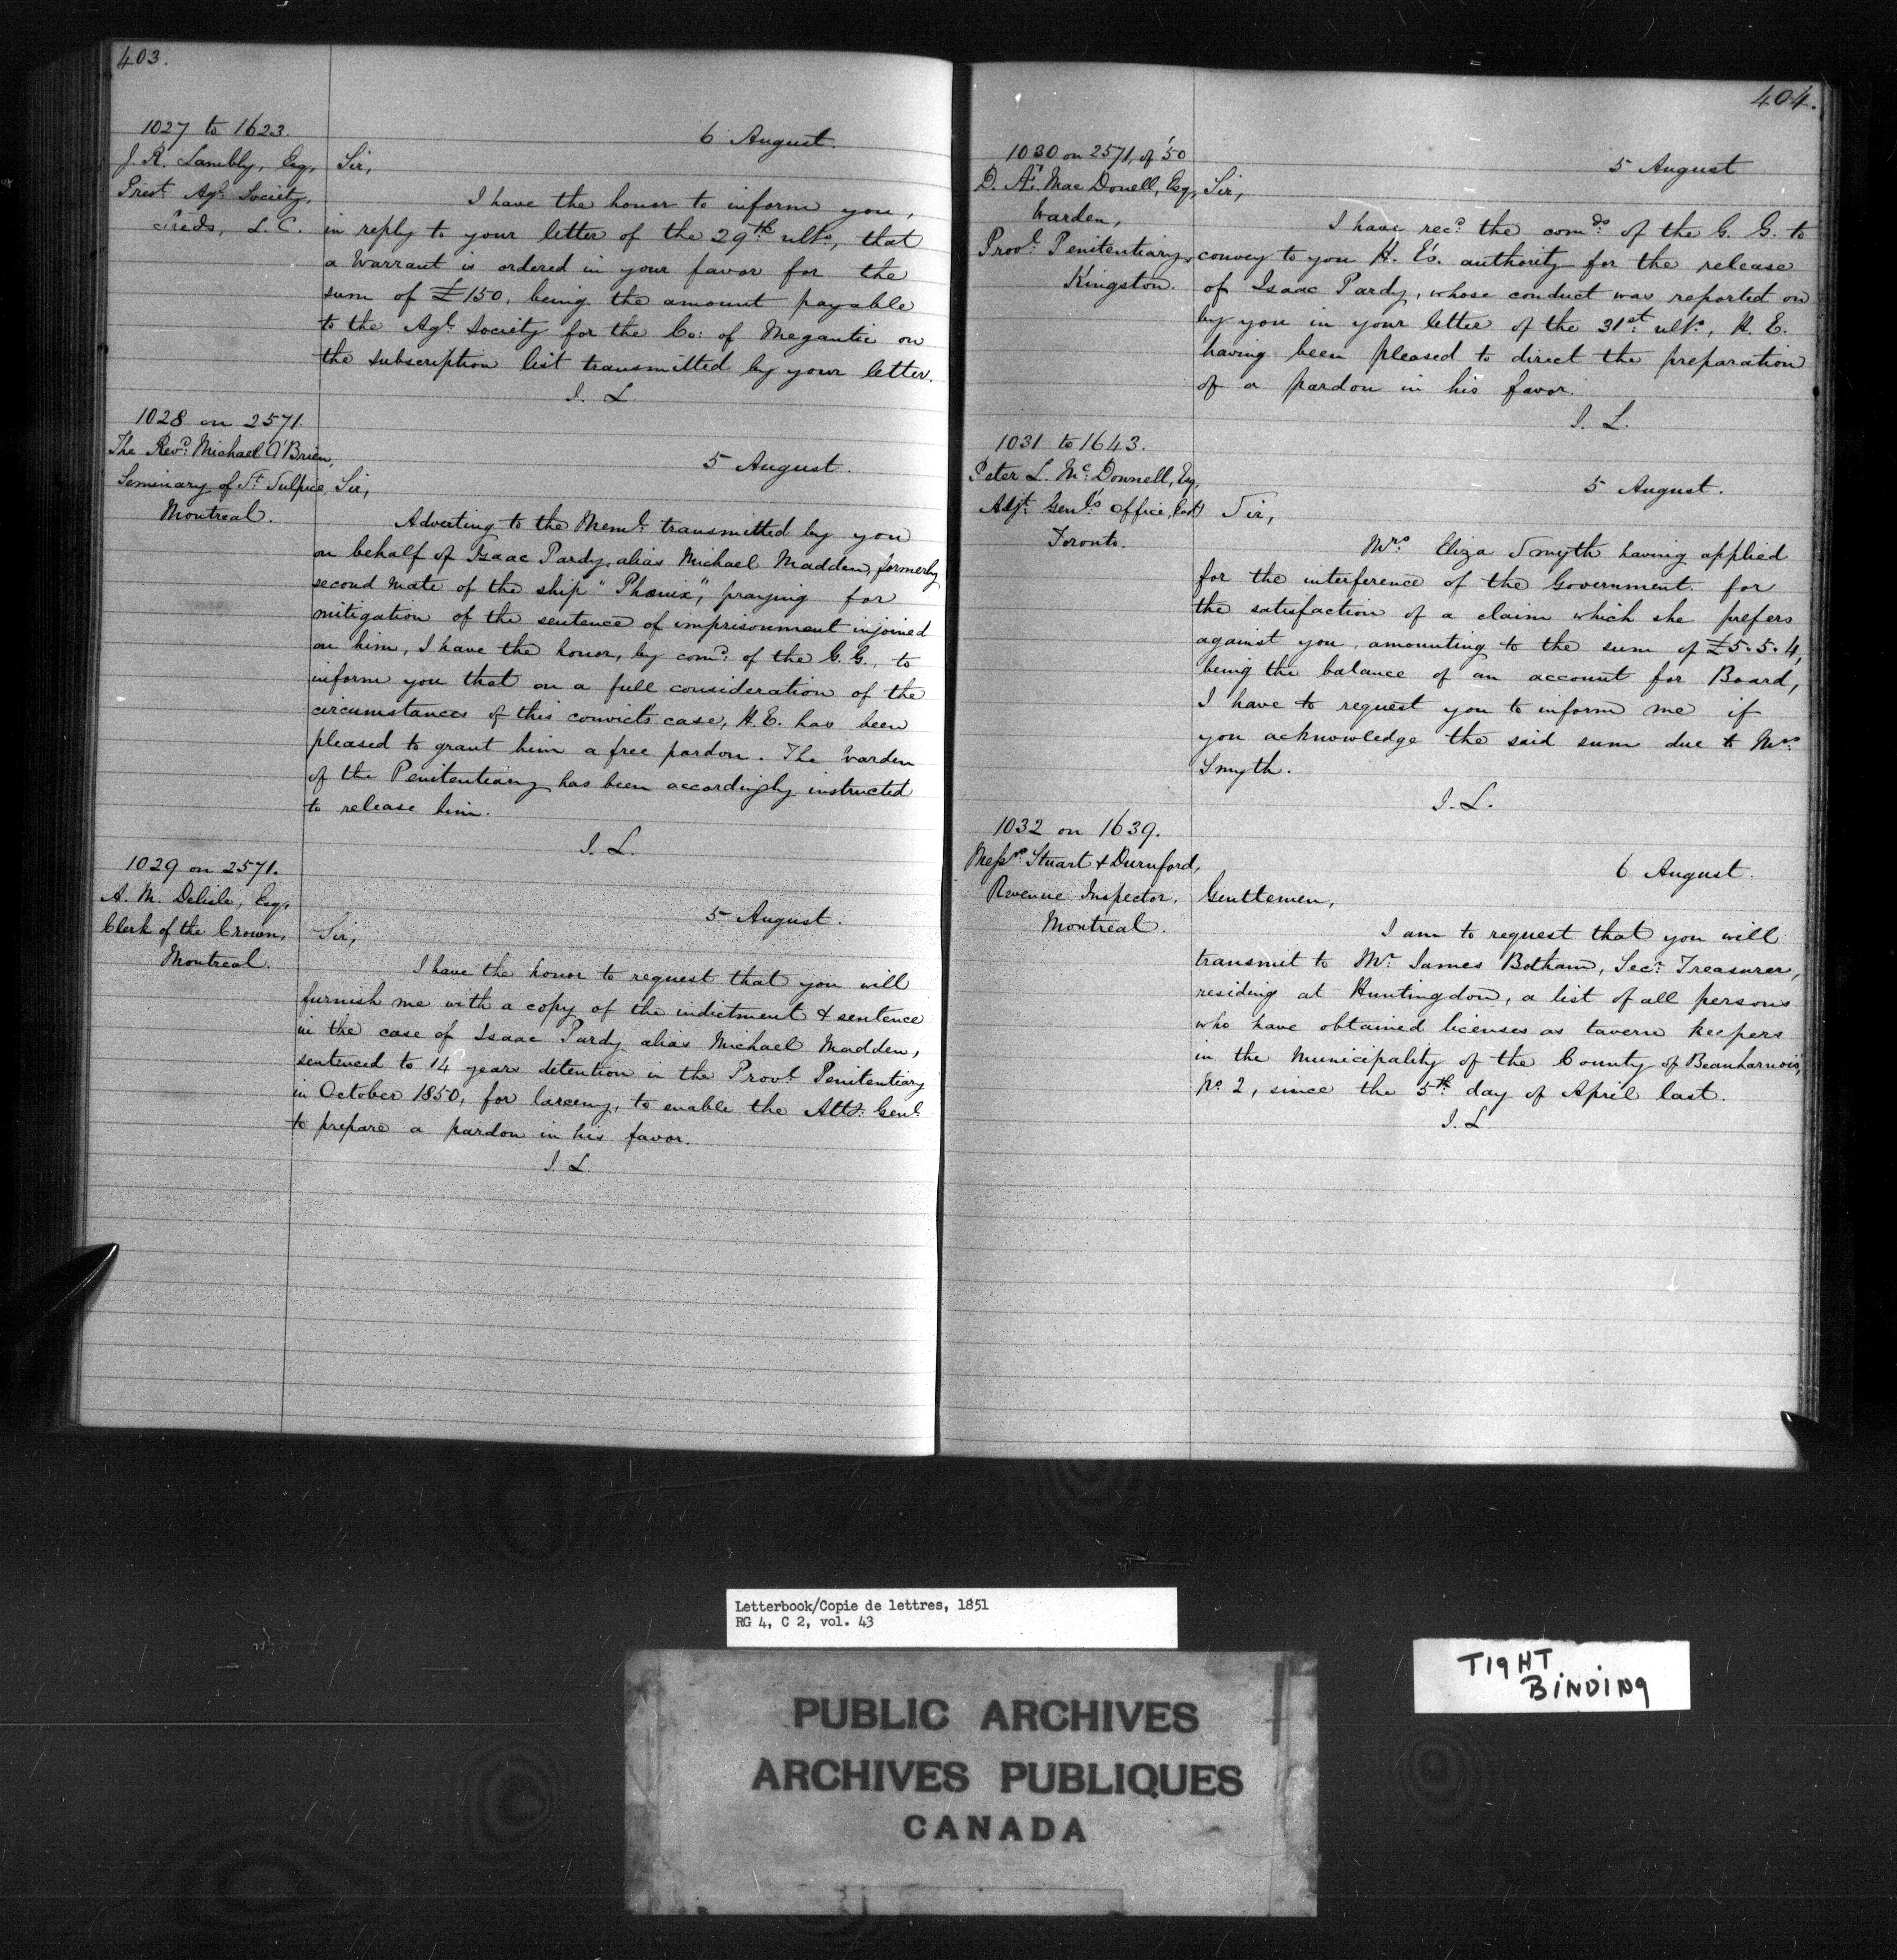 403.
1027 to 1623.
J. R. Lambly, Esq,
Prest. Agl. Society,
Leeds, L. C.
6 August.
Sir,
I have the honor to inform you,
in reply to your letter of the 29th ulto, that
a Warrant is ordered in your favor for the
sum of £150, being the amount payable
to the Agl. Society for the Co: of Megantic on
the subscription list transmitted by your letter.
J. L
1028 on 2571.
The Revd. Michael O'Brien,
Seminary of St. Sulpice,
Montreal.
5 August.
Sir,
Adverting to the Meml. transmitted by you
on behalf of Isaac Pardy, alias Michael Madden, formerly
second mate of the ship "Phœnix", praying for
mitigation of the sentence of imprisonment injoined
on him, I have the honor, by comd. of the G. G., to
inform you that on a full consideration of the
circumstances of this convict's case, H. E. has been
pleased to grant him a free pardon. The Warden
of the Penitentiary has been accordingly instructed
to release him.
J. L.
1029 on 2571.
A. M. Delisle, Esq,
Clerk of the Crown,
Montreal.
5 August.
Sir,
I have the honor to request that you will
furnish me with a copy of the indictment & sentence
in the case of Isaac Pardy alias Michael Madden,
sentenced to 14 years detention in the Provl. Penitentiary
in October 1850, for larceny, to enable the Atty. Genl.
to prepare a pardon in his favor.
J. L.
404.
1030 on 2571, of '50
D. Æ. Mac Donell, Esq,
Warden,
Provl. Penitentiary,
Kingston.
5 August
Sir,
I have recd. the comds. of the G. G. to
convey to you H. E's. authority for the release
of Isaac Pardy, whose conduct was reported on
by you in your letter of the 31st. ulto, H. E.
having been pleased to direct the preparation
of a pardon in his favor.
J. L.
1031 to 1643.
Peter L. McDonnell, Esq,
Adjt. Genl's Office,
Toronto.
5 August.
Sir,
Mrs. Eliza Smyth having applied
for the interference of the Government for
the satisfaction of a claim which she prefers
against you, amounting to the sum of £5.5.4,
being the balance of an account for Board,
I have to request you to inform me if
you acknowledge the said sum due to Mrs.
Smyth.
J. L.
1032 on 1639.
Messrs. Stuart & Durnford,
Revenue Inspector,
Montreal.
6 August.
Gentlemen,
I am to request that you will
transmit to Mr. James Botham, Secy. Treasurer,
residing at Huntingdon, a list of all persons
who have obtained licenses as tavern keepers
in the Municipality of the County of Beauharnois,
No. 2, since the 5th. day of April last.
J. L
Letterbook/Copie de lettres, 1851
RG 4, C 2, vol. 43
TIGHT
BINDING
PUBLIC ARCHIVES
ARCHIVES PUBLIQUES
CANADA